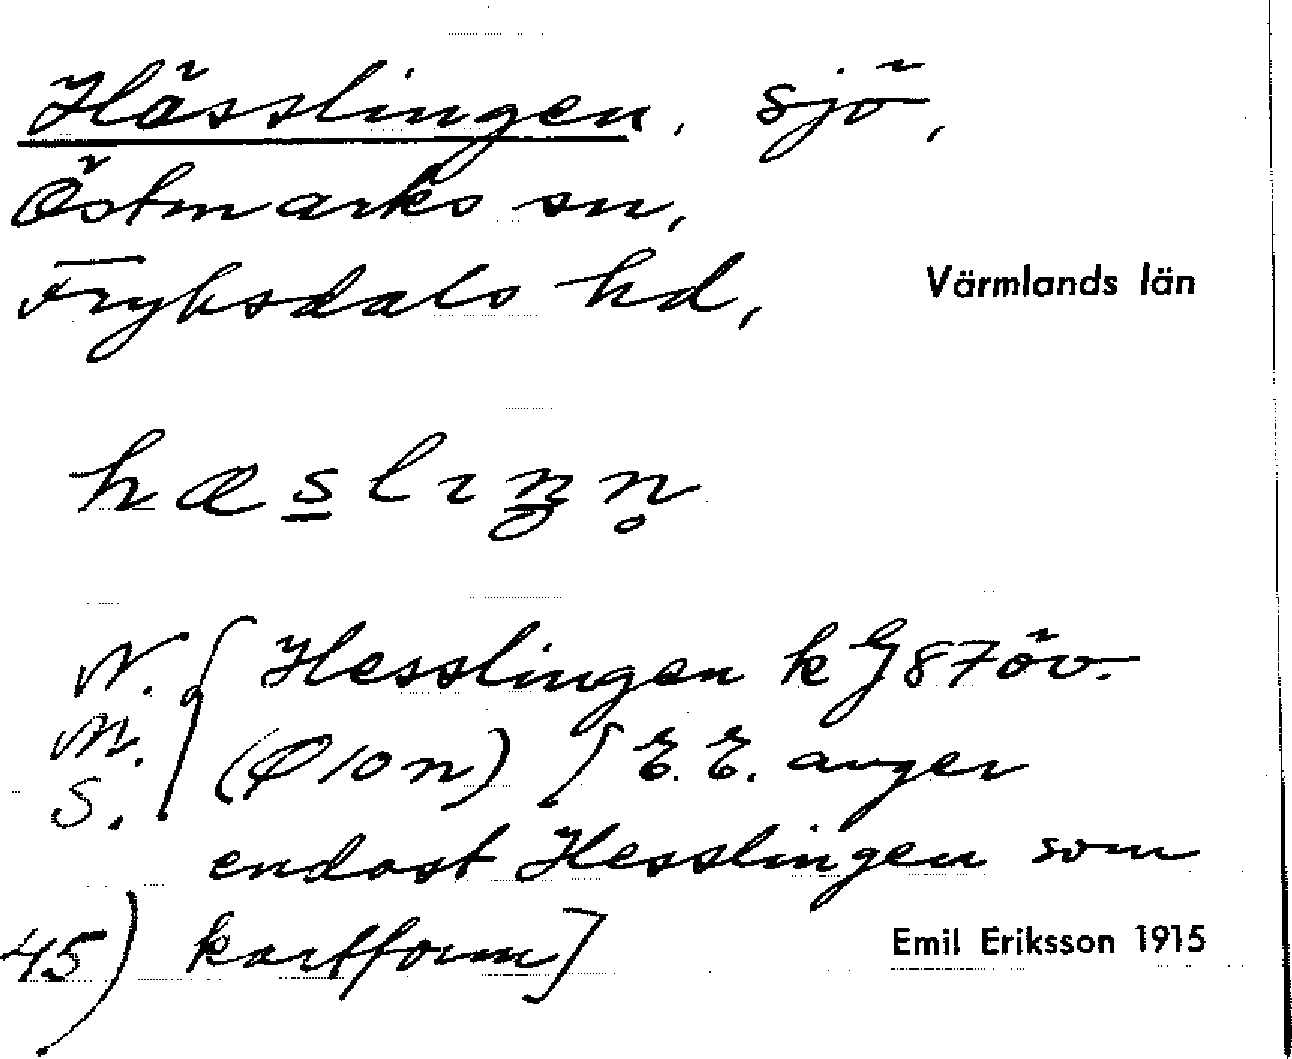 Hässlingen, sjö,
Östmarks sn,
Fryksdals hd,
Värmlands län
hæslıŋn̥
N. Hesslingen k G 87 öv.
M. (Ø 10 n) [E. E. anger
S.
endast Hesslingen som
45) kartform]
Emil Eriksson 1915